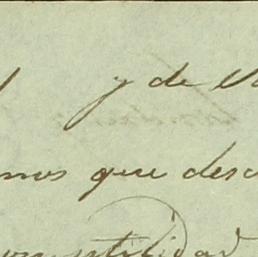 y de
mos que des
utilidad